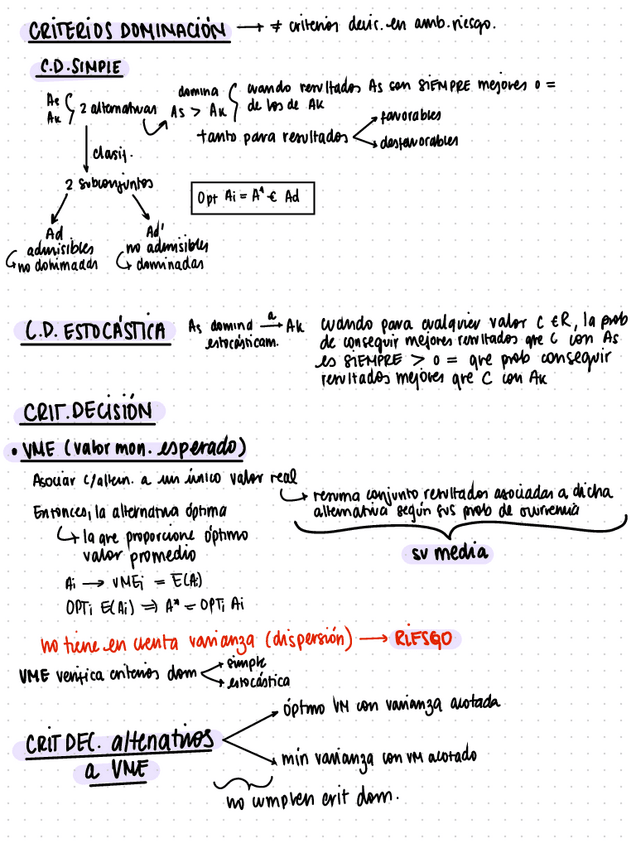 CRITERIOS DOMINACIÓN → ≠ criterios decis. en amb. riesgo.
C.D. SIMPLE
As
Ak } 2 alternativas
domina
As > Ak { cuando resultados As son SIEMPRE mejores o =
de los de Ak
tanto para resultados → favorables
→ desfavorables
clasif.
2 subconjuntos
Opt Ai = A* € Ad
Ad
admisibles
no dominadas
Ad'
no admisibles
dominadas
C.D. ESTOCÁSTICA
As domina a → Ak
estocásticam.
cuando para cualquier valor C ∈ R, la prob
de conseguir mejores resultados que C con As
es SIEMPRE > o = que prob conseguir
resultados mejores que C con Ak
CRIT. DECISIÓN
• VME (valor mon. esperado)
Asociar c/altern. a un único valor real
resuma conjunto resultados asociadas a dicha
alternativa según sus prob de ocurrencia
su media
Entonces, la alternativa óptima
la que proporcione óptimo
valor promedio
Ai → VMEi = E(Ai)
OPTi E(Ai) ⇒ A* = OPTi Ai
no tiene en cuenta varianza (dispersión) → RIESGO
VME verifica criterios dom → simple
→ estocástica
CRIT DEC. altenativos
a VME
óptmo VM con varianza acotada
min varianza con VM acotado
no cumplen crit dom.